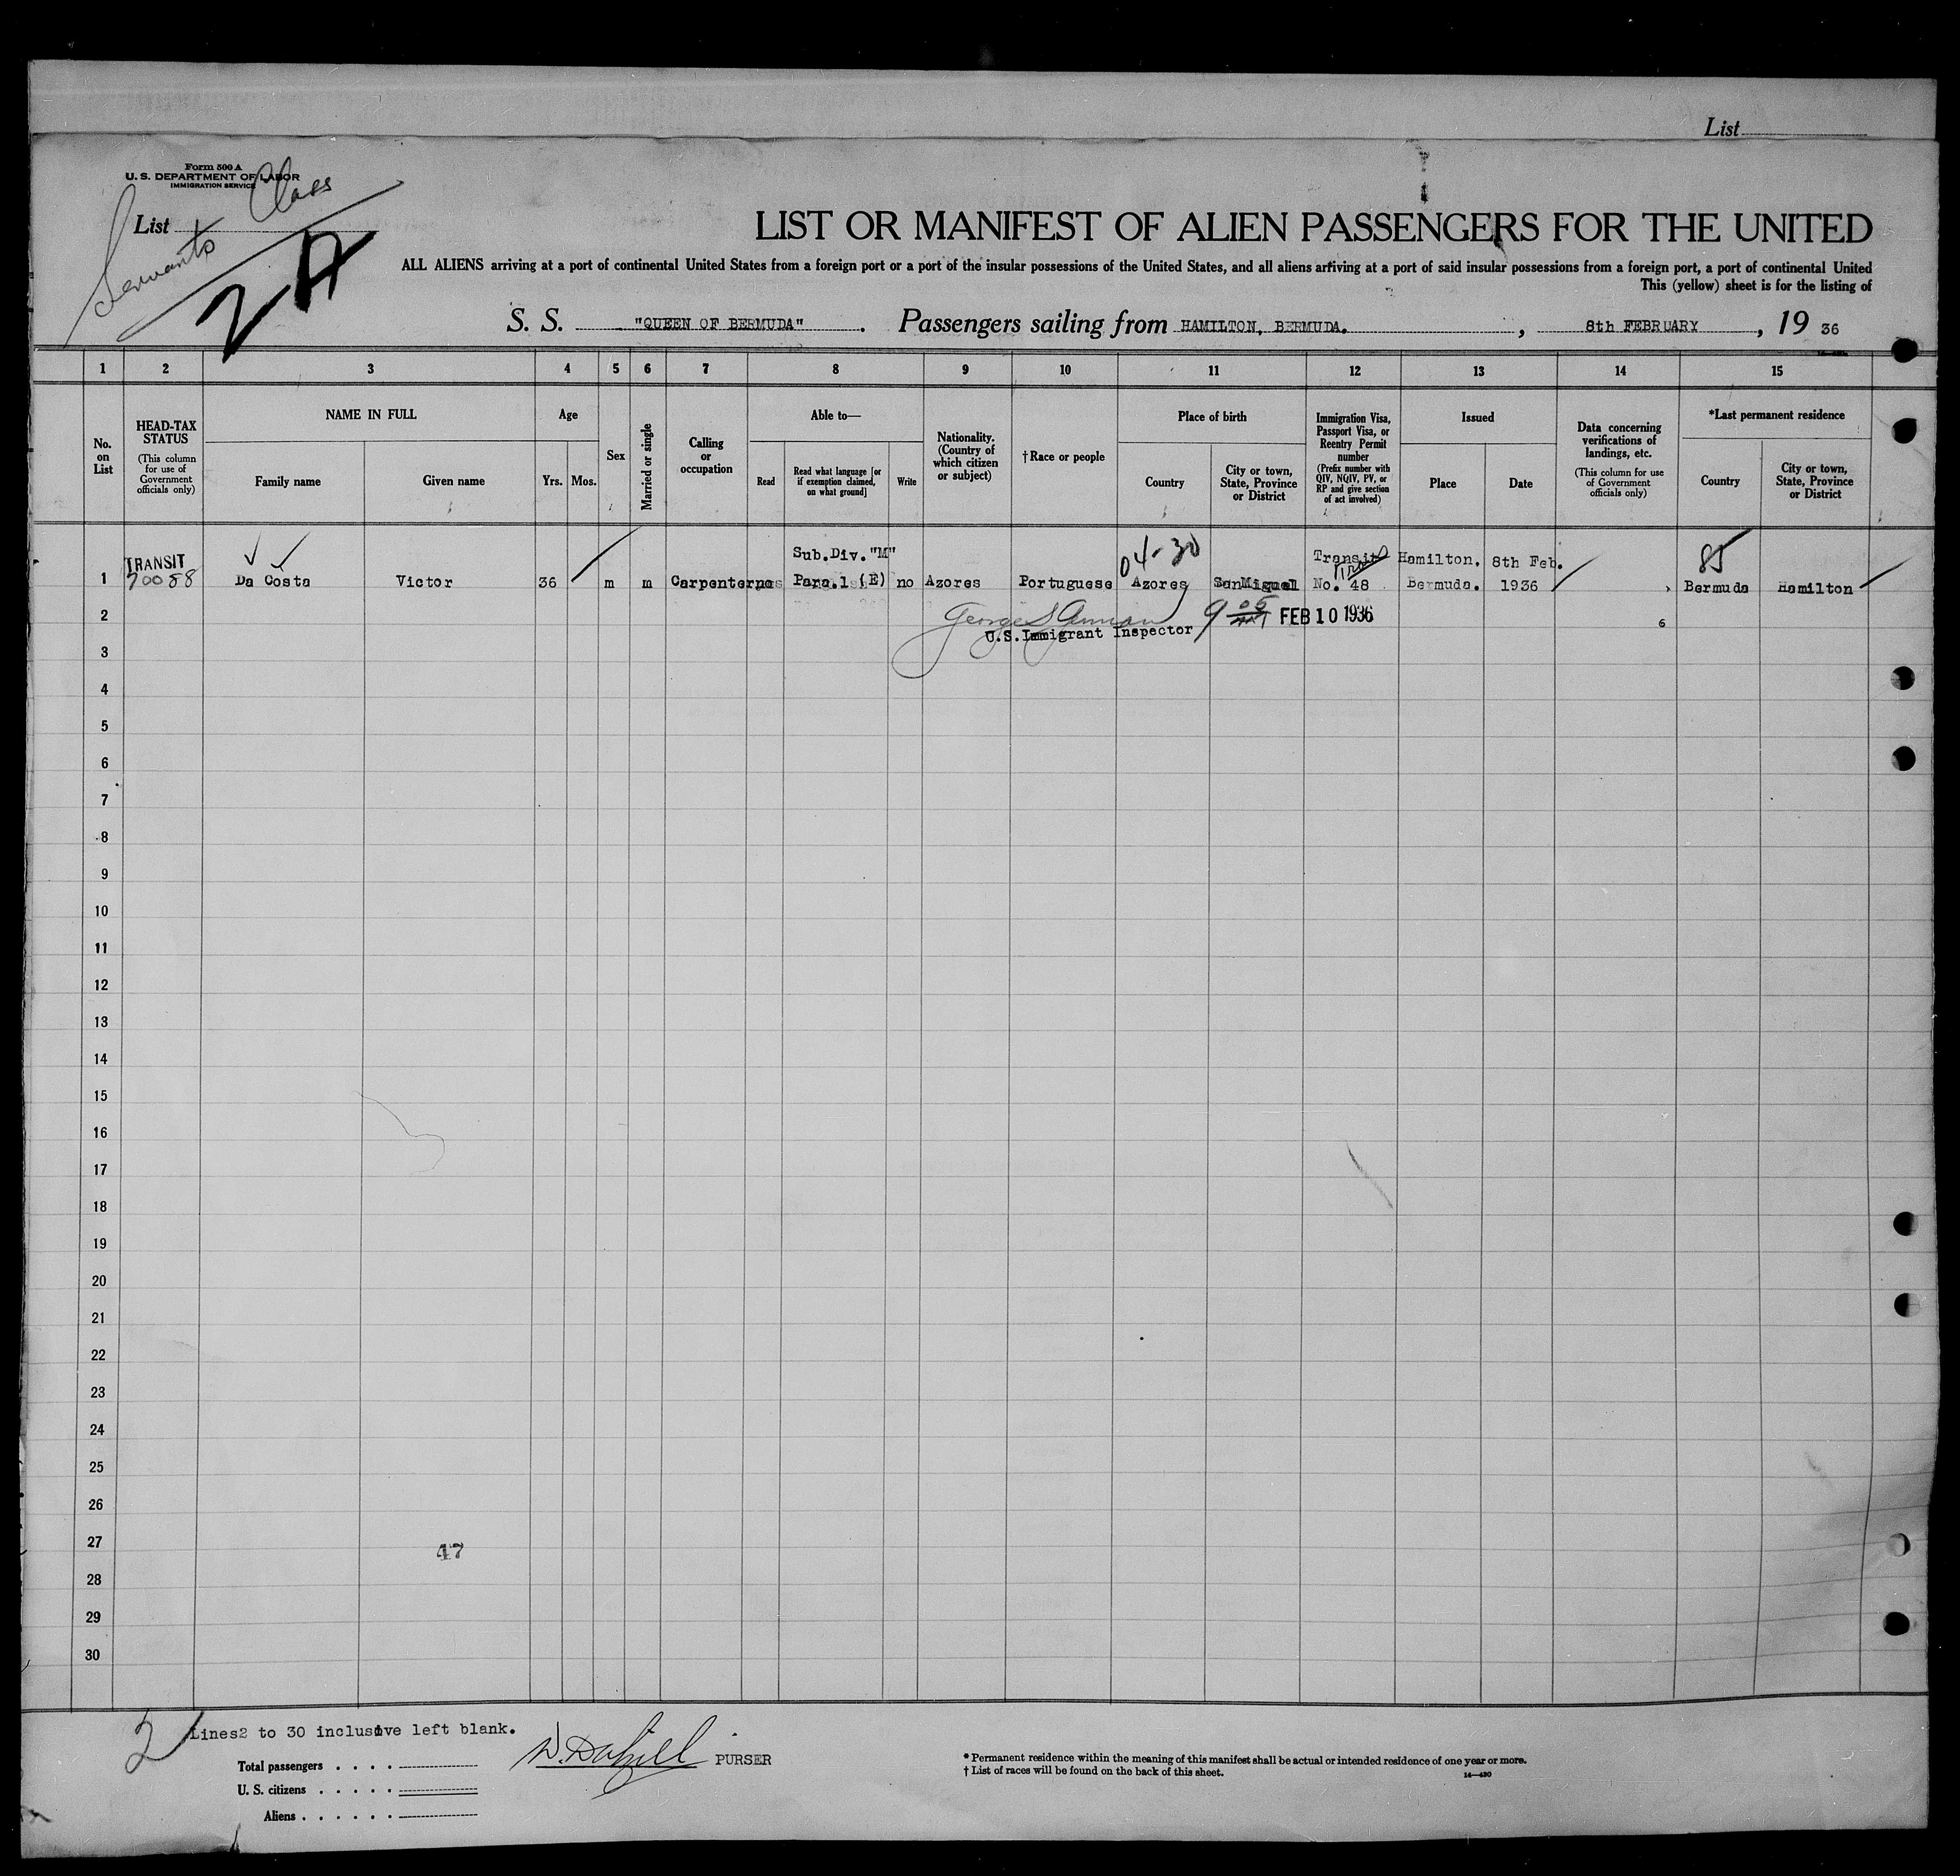 List
Form 500 A
U. S. DEPARTMENT OF LABOR
IMMIGRATION SERVICE
List
Servants Class
2A
LIST OR MANIFEST OF ALIEN PASSENGERS FOR THE UNITED
ALL ALIENS arriving at a port of continental United States from a foreign port or a port of the insular possessions of the United States, and all aliens arriving at a port of said insular possessions from a foreign port, a port of continental United
This (yellow) sheet is for the listing of
S. S. "QUEEN OF BERMUDA". Passengers sailing from HAMILTON, BERMUDA., 8th FEBRUARY, 19 36
1 2 3 4 5 6 7 8 9 10 11 12 13 14 15
No. on List
HEAD-TAX STATUS
(This column for use of Government officials only)
NAME IN FULL
Family name
Given name
Age
Yrs. Mos.
Sex
Married or single
Calling or occupation
Able to—
Read
Read what language [or if exemption claimed, on what ground]
Write
Nationality. (Country of which citizen or subject)
†Race or people
Place of birth
Country
City or town, State, Province or District
Immigration Visa, Passport Visa, or Reentry Permit number
(Prefix number with QIV, NQIV, PV, or RP and give section of act involved)
Issued
Place
Date
Data concerning verifications of landings, etc.
(This column for use of Government officials only)
*Last permanent residence
Country
City or town, State, Province or District
TRANSIT Sub.Div."M" 04-30 Transit Hamilton, 8th Feb. 85
1 70058 Da Costa Victor 36 m m Carpenter Para.1 (E) no Azores Portuguese Azores San Miguel No. 48 Bermuda. 1936 Bermuda Hamilton
2 FEB 10 1936
U.S.Immigrant Inspector
6
3
4
5
6
7
8
9
10
11
12
13
14
15
16
17
18
19
20
21
22
23
24
25
26
27
47
28
29
30
2
Lines2 to 30 inclusive left blank.
PURSER
Total passengers . . . .
U. S. citizens . . . . .
Aliens . . . . . .
* Permanent residence within the meaning of this manifest shall be actual or intended residence of one year or more.
† List of races will be found on the back of this sheet.
14—430